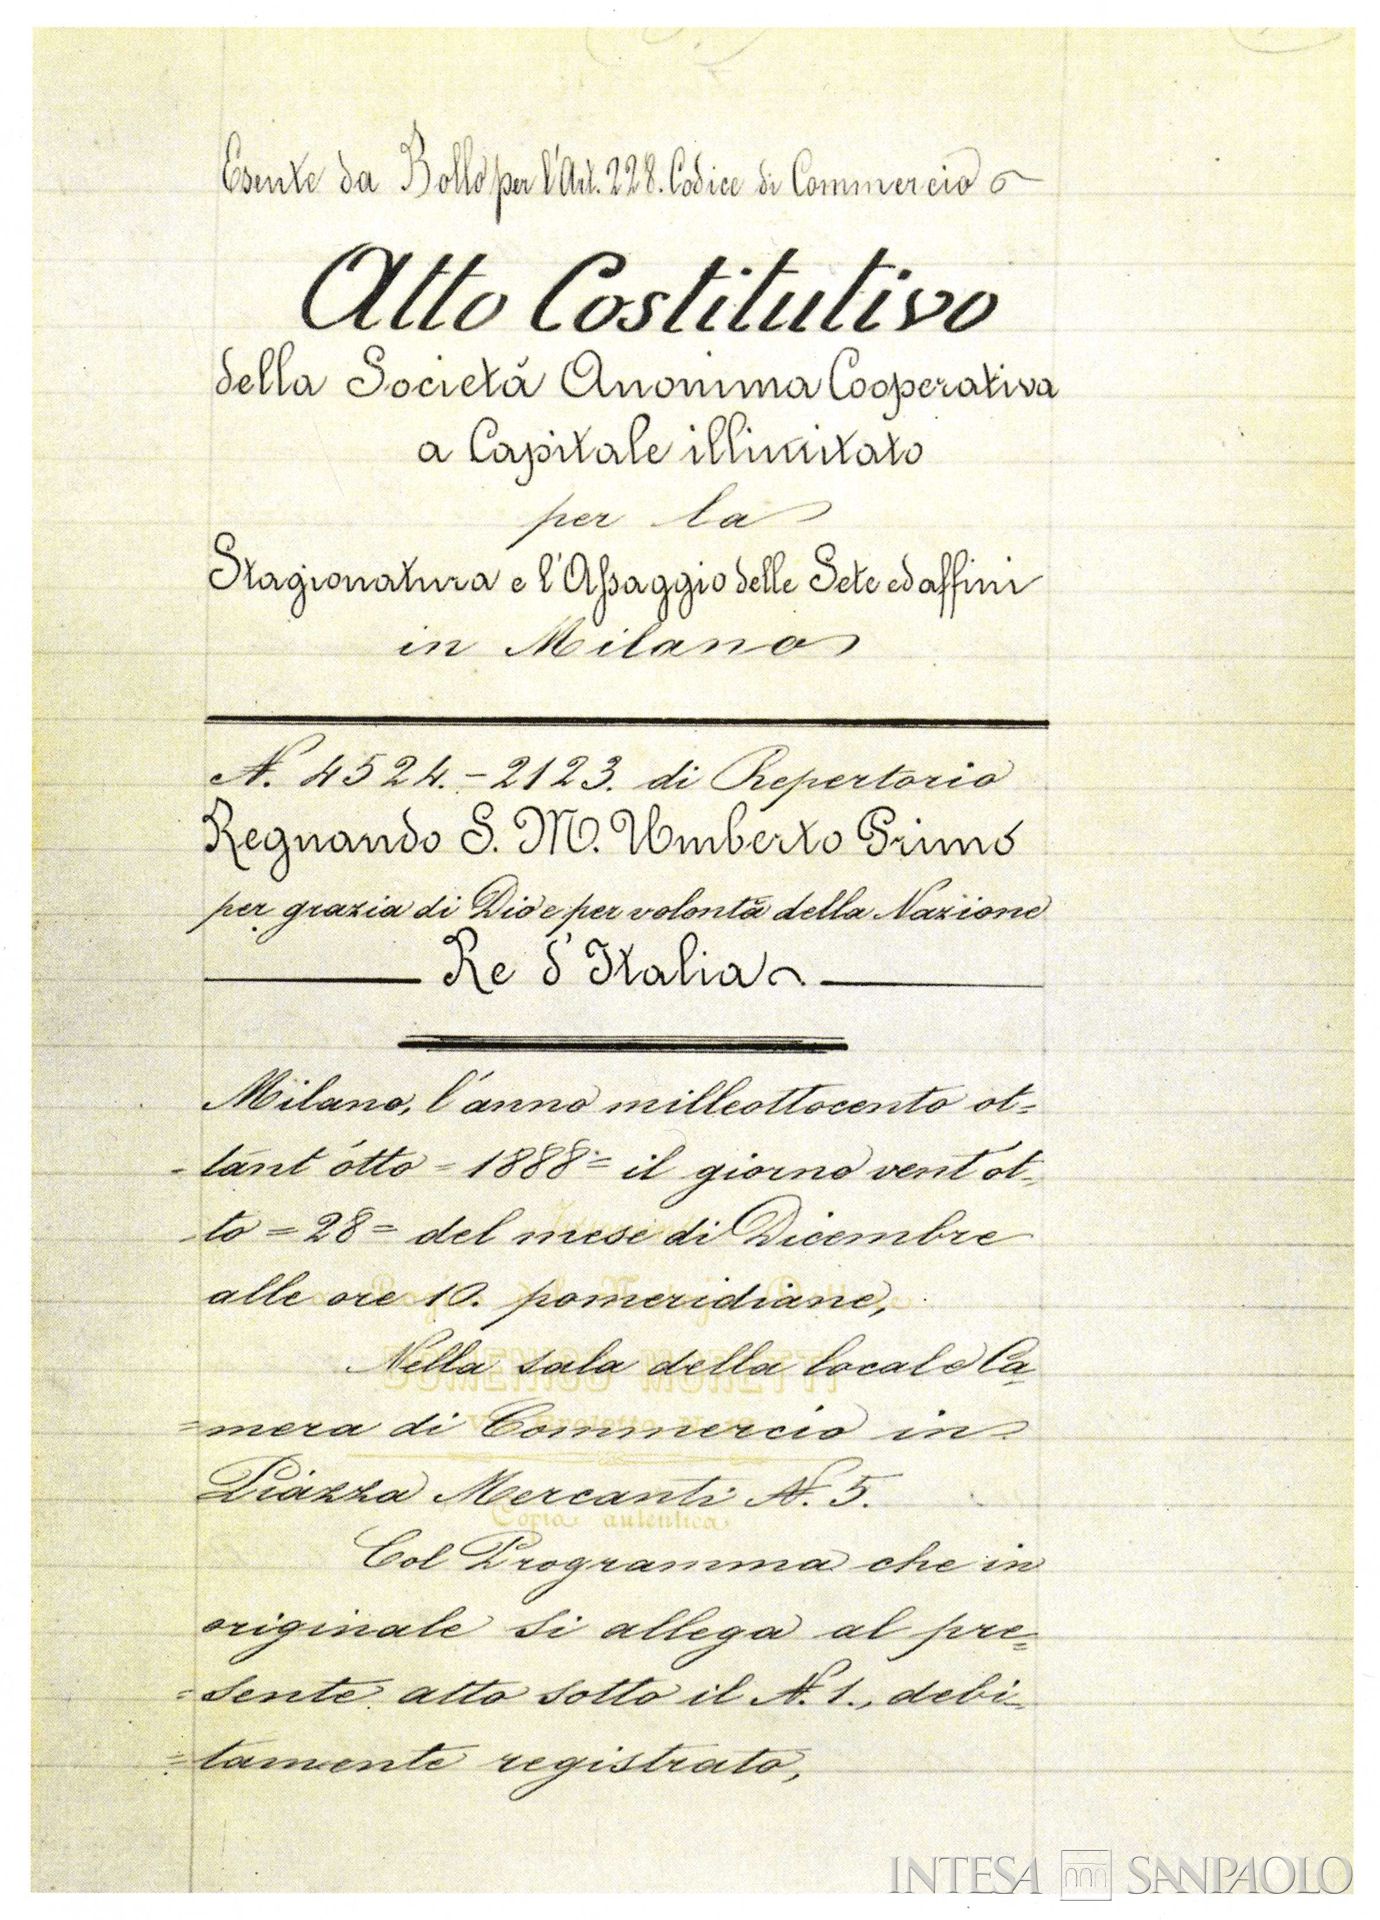 Esente da Bollo per l'Art. 228. Codice di Commercio
Atto Costitutivo
della Società Anonima Cooperativa
a Capitale illimitato
per la
Stagionatura e l'Assaggio delle Sete ed affini
in Milano
N. 4524.-2123. di Repertorio
Regnando S. M. Umberto Primo
per grazia di Dio e per volontà della Nazione
Re d'Italia
Milano, l'anno milleottocento ot=
=tant'otto = 1888 = il giorno vent'ot=
=to = 28 = del mese di Dicembre
alle ore 10. pomeridiane,
Nella sala della locale Ca=
=mera di Commercio in
Piazza Mercanti N. 5.
Col Programma che in
originale si allega al pre=
=sente atto sotto il N. 1., debi=
=tamente registrato,
DOMENICO MORETTI
Copia autentica
INTESA SANPAOLO